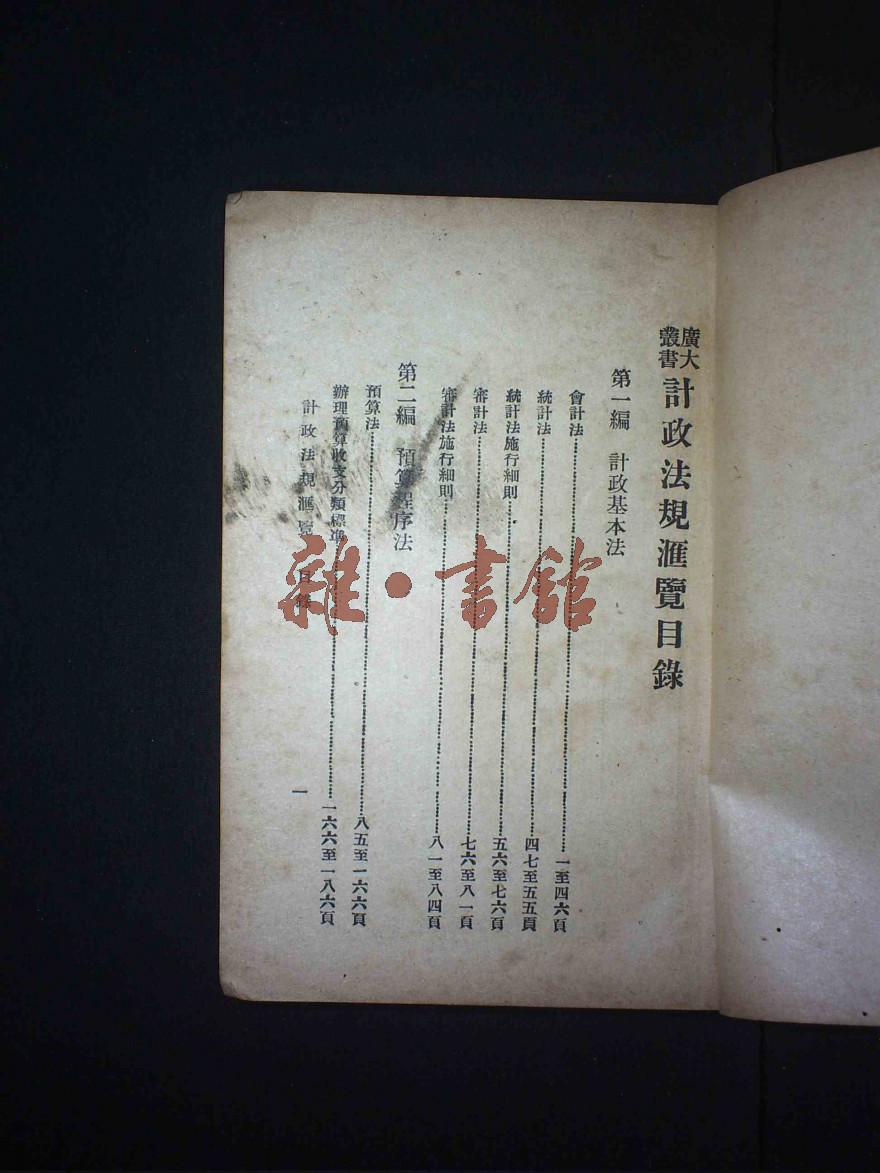 廣大叢書
計政法規滙覽目錄
第一編　計政基本法
會計法……一至四六頁
統計法……四七至五五頁
統計法施行細則……五六至七六頁
審計法……七六至八一頁
審計法施行細則……八一至八四頁
第二編　預算程序法
預算法……八五至一六六頁
辦理預算收支分類標準……一六六至一八六頁
計政法規滙覽　目錄
一
雜·書館